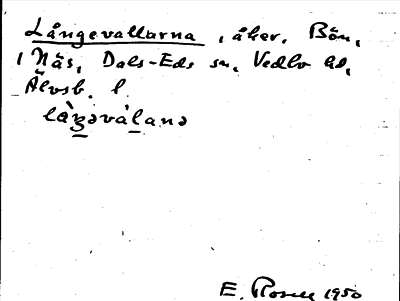 Långevallarna, åker, Bön,
1 Näs, Dals-Eds sn, Vedbo hd,
Älvsb. l.
låŋəvàlanə
E. 1950